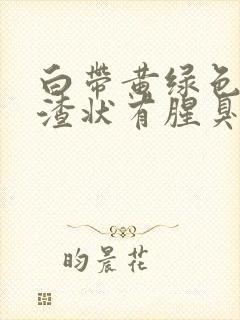 白带黄绿色
渣状有腥臭
昀晨花